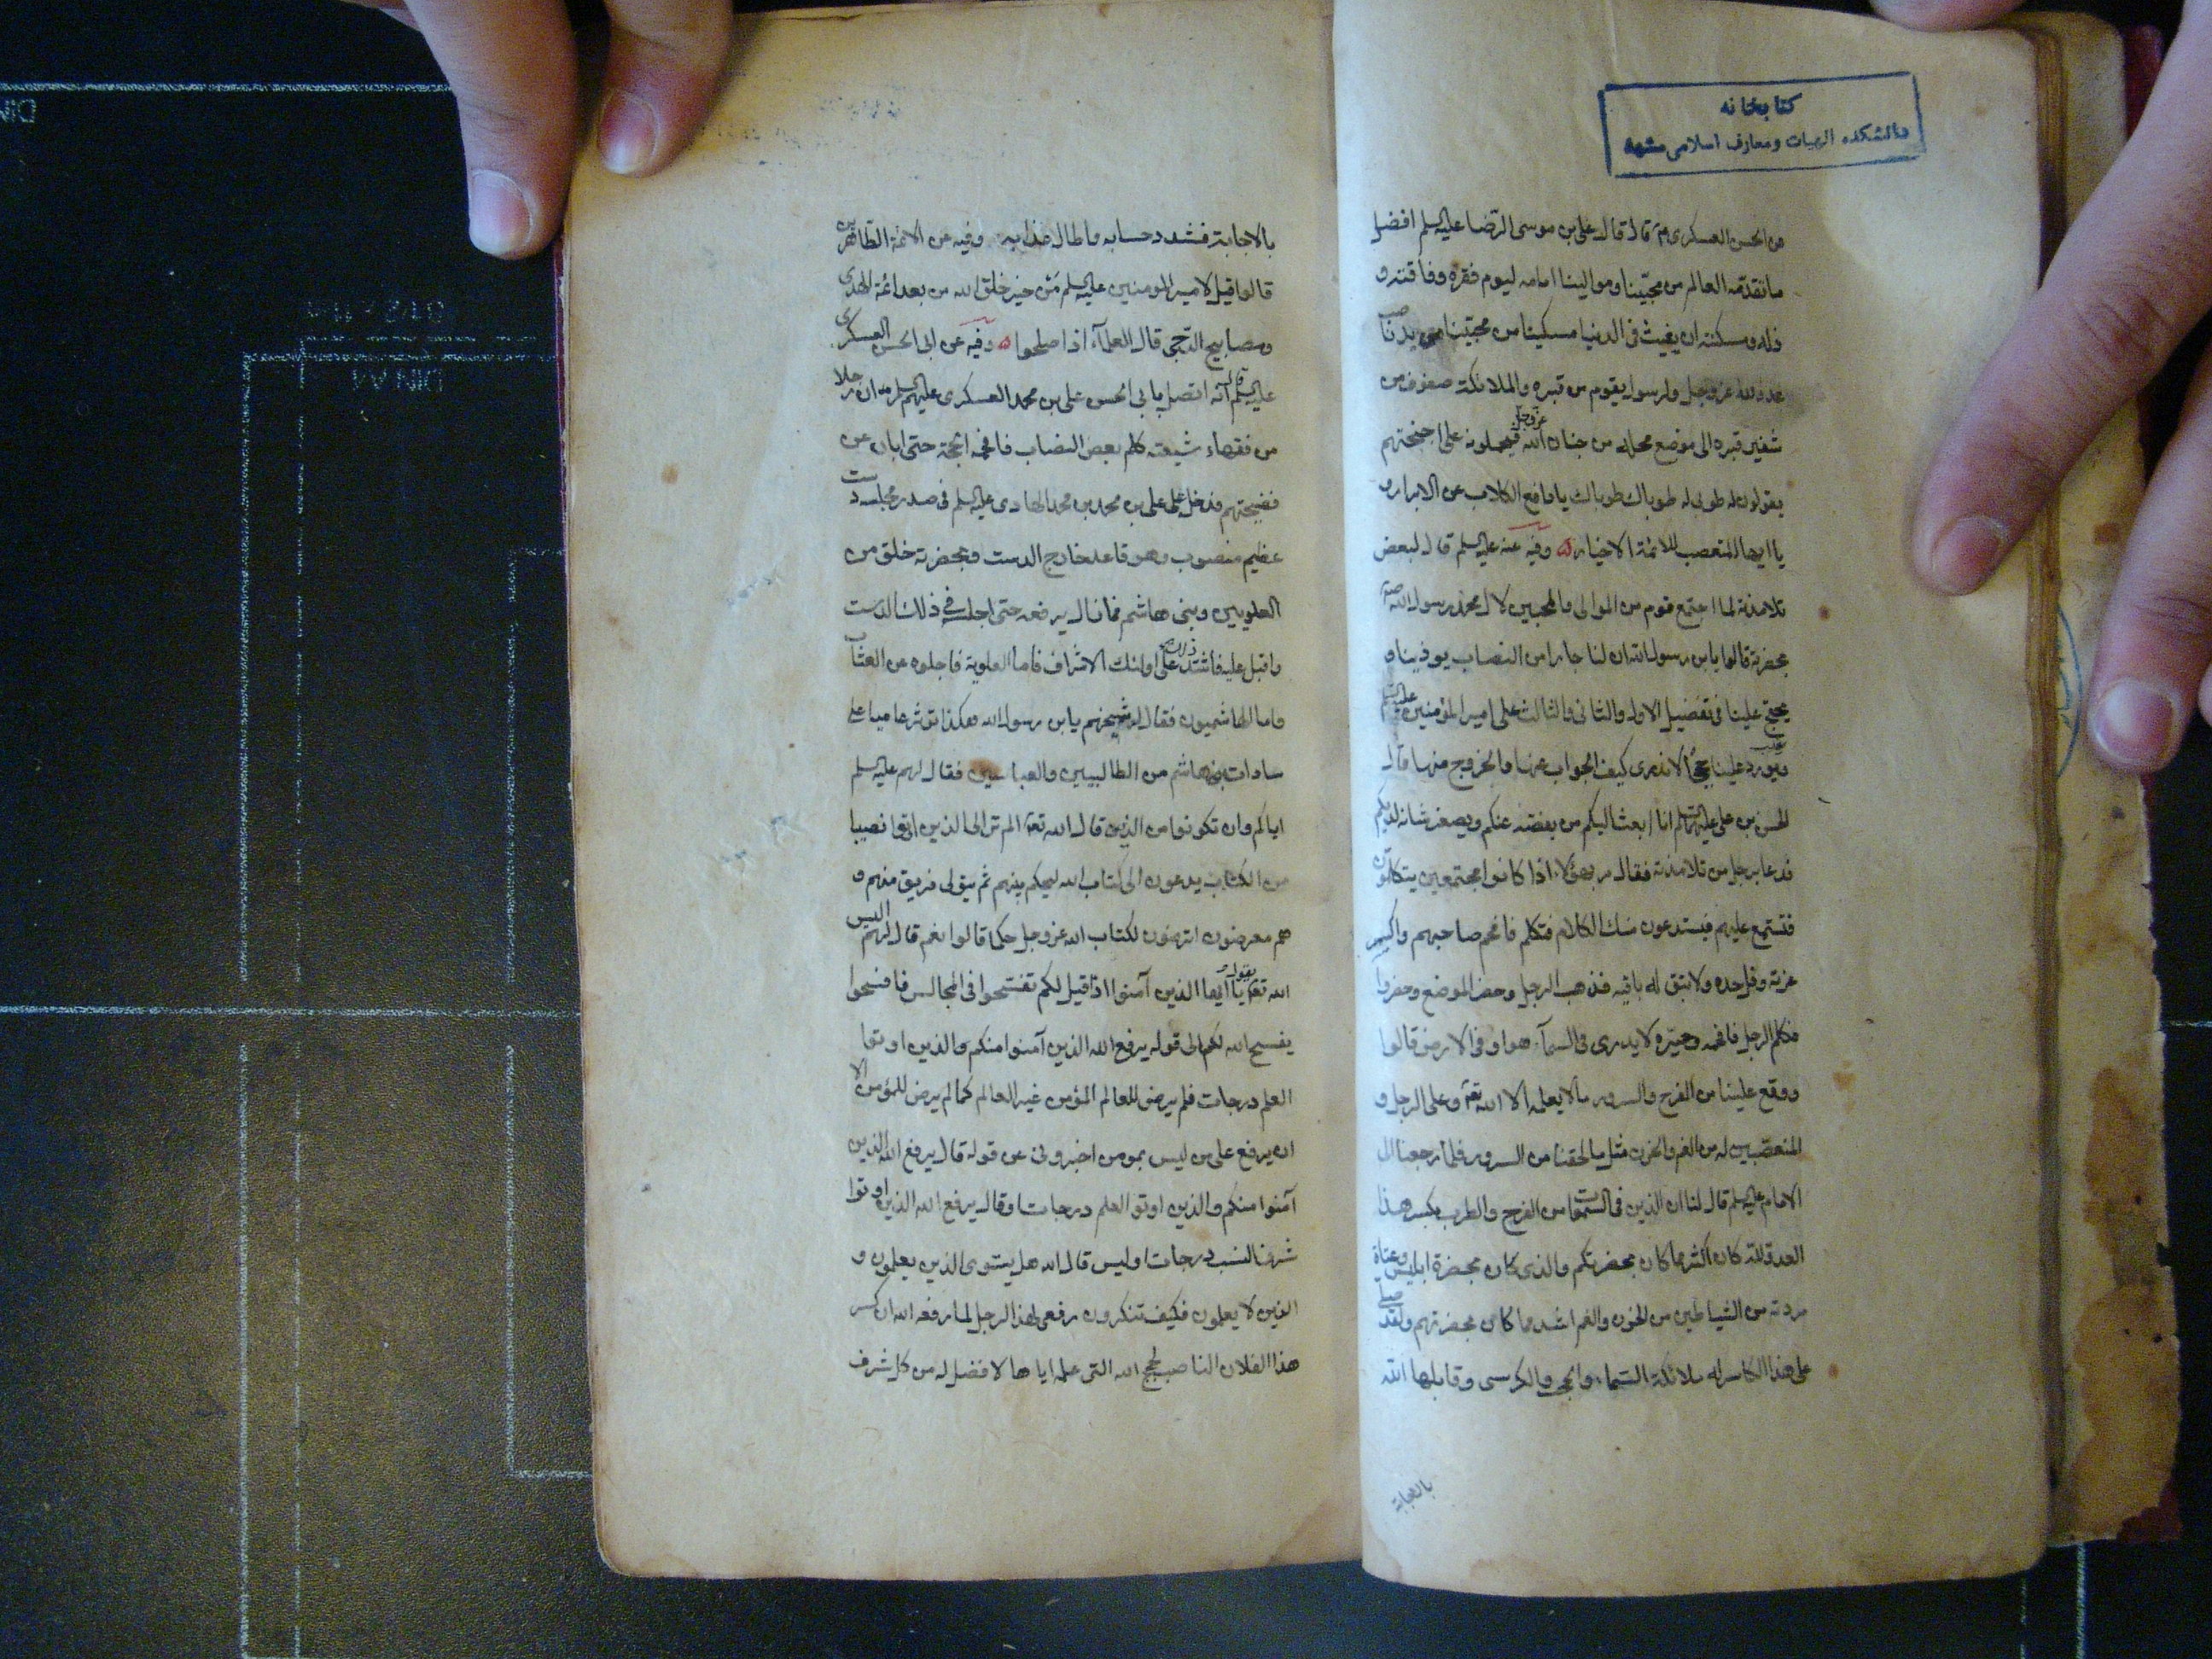 كتابخانه
دانشكده الهيات ومعارف اسلامى مشهد
من الحسن العسكرى ع قال قال على بن موسى الرضا عليه السلم افضل
ما نقدمه العالم من محبينا وموالينا امامه ليوم فقره وفاقته و
ذله ومسكنته ان يغيث فى الدنيا مسكينا من محبينا من يد نا
عدو لله عز وجل ولرسوله يقوم من قبره والملائكة صفوف من
شفير قبره الى موضع محله من جنان الله عز وجل فيحملونه على اجنحتهم
يقولون له طوبى له طوباك طوباك يا دافع الكلاب عن الابرار و
يا ايها المتعصب للائمة الاخيار وفيه عنه عليه السلم قال لبعض
تلامذته لما اجتمع قوم من الموالى والمحبين لال محمد رسول الله
بحضرته قالوا يا بن رسول الله ان لنا جارا من النصاب يوذينا و
يحتج علينا فى تفضيل الاول والثانى والثالث على امير المؤمنين عليه السلم
ويورد علينا حججا لا ندرى كيف الجواب عنها والخروج منها قال
الحسن بن على عليهما السلم انا ابعث اليكم من يفضه عنكم ويصغر شانه لديكم
فدعا برجل من تلامذته فقال مر بهؤلاء اذا كانوا مجتمعين يتكلمون
فتستمع عليهم فيستدعون منك الكلام فتكلم فافحم صاحبهم واكسر
عزته وفل حده ولا تبق له باقيه فذهب الرجل وحضر الموضع وحضروا
فكلم الرجل فافحمه وحيره لا يدرى فى السماء هو او فى الارض قالوا
ووقع علينا من الفرح والسرور ما لا يعلمه الا الله تعه وعلى الرجل و
المتعصبين له من الغم والحزن مثل ما لحقنا من السرور فلما رجعنا الى
الامام عليه السلم قال لنا ان الذين فى السموات من الفرح والطرب بكسر هذا
العدو لله كان اكثر مما كان بحضرتكم والذى كان بحضرة ابليس وعتاة
مردته من الشياطين من الحزن والغم اشد مما كان بحضرتهم ولقد صلى
على هذا الكاسر له ملائكة السماء والحجب والكرسى وقابلها الله
بالاجابة
بالاجابة فشدد حسابه واطال عذابه وفيه عن الائمة الطاهرين
قالوا قيل لامير المومنين عليه السلم من خير خلق الله من بعد ائمة الهدى
ومصابيح الدجى قال العلماء اذا صلحوا وفيه عن ابى الحسن العسكرى
عليه السلم انه اتصل بابى الحسن على بن محمد العسكرى عليهم السلم ان رجلا
من فقهاء شيعته كلم بعض النصاب فافحمه الحجة حتى ابان عن
فضيحتهم فدخل على على بن محمد بن محمد الهادى عليه السلم فى صدر مجلسه دست
عظيم منصوب وهو قاعد خارج الدست وبحضرته خلق من
العلويين وبنى هاشم فما زال يرفعه حتى اجلسه فى ذلك الدست
واقبل عليه فاشتد ذلك على اولئك الاشراف فاما العلوية فاجلوه عن العتاب
واما الهاشميون فقال له شيخهم يا بن رسول الله هكذا تؤثر عاميا على
سادات بنى هاشم من الطالبيين والعباسيين فقال لهم عليه السلم
اياكم وان تكونوا من الذين قال الله تعه الم تر الى الذين اوتوا نصيبا
من الكتاب يدعون الى كتاب الله ليحكم بينهم ثم يتولى فريق منهم و
هم معرضون اترضون لكتاب الله عز وجل حكما قالوا نعم قال لهم اليس
الله تعه يقول يا ايها الذين آمنوا اذا قيل لكم تفسحوا فى المجالس فافسحوا
يفسح الله لكم الى قوله يرفع الله الذين آمنوا منكم والذين اوتوا
العلم درجات فلم يرض للعالم المؤمن غير العالم كما لم يرض للمؤمن الا
ان يرفع على من ليس بمومن اخبرونى عن قوله قال يرفع الله الذين
آمنوا منكم والذين اوتو العلم درجات اوقال يرفع الله الذين اوتوا
شرف النسب درجات اوليس قال الله هل يستوى الذين يعلمون و
الذين لا يعلمون فكيف تنكرون رفعى لهذا الرجل لما رفعه الله ان كسر
هذا الفلان الناصب لحجج الله التى علمه اياها لافضل له من كل شرف